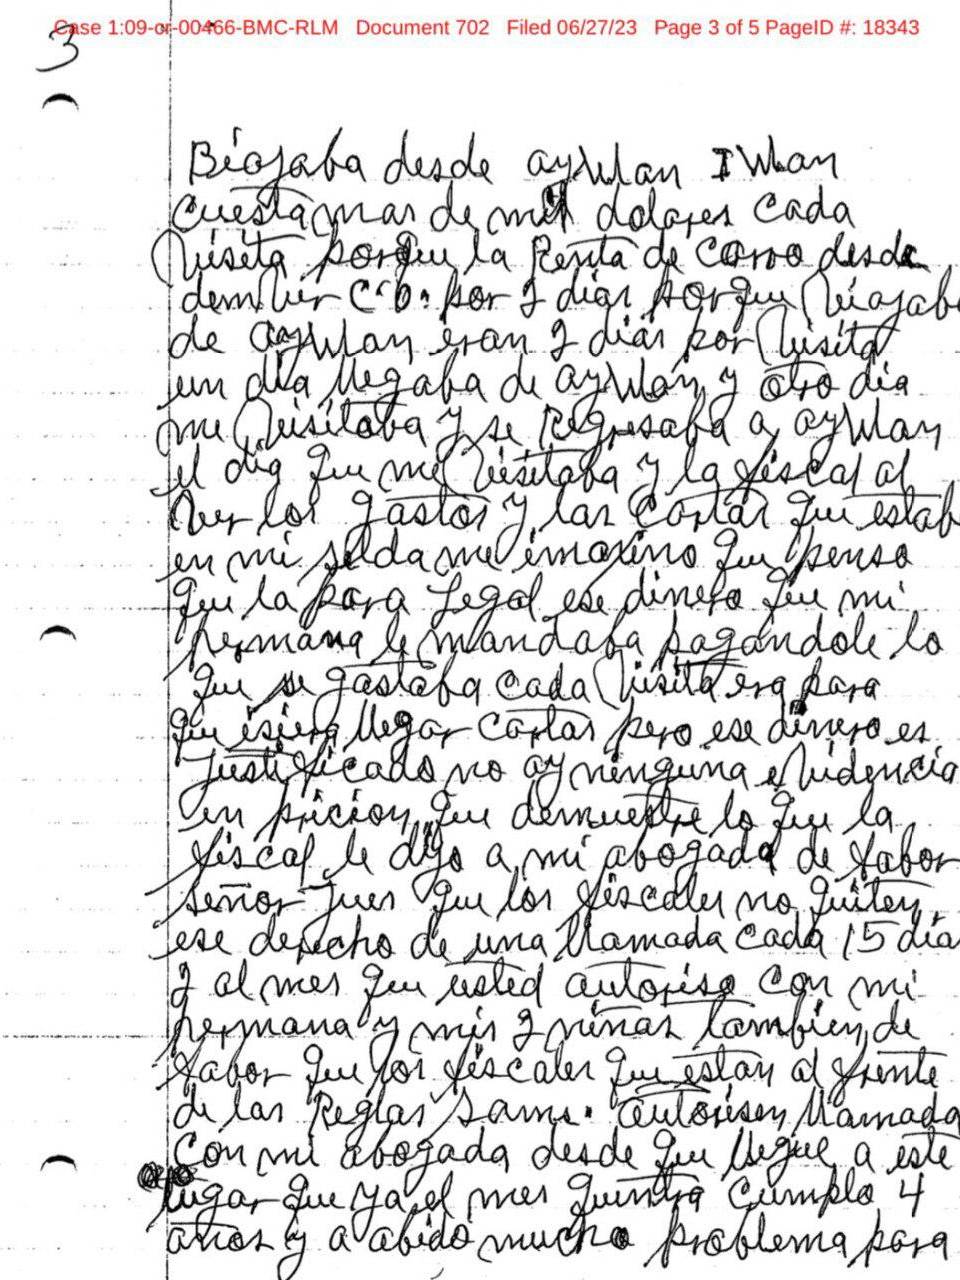 Case 1:09-cr-00466-BMC-RLM Document 702 Filed 06/27/23 Page 3 of 5 PageID #: 18343
3
Biajaba desde aywlan I wlan
cuesta mas de mil dolares cada
Visita porqeu la Renta de carro desde
demver C.O. por 2 dias porque Viajaba
de aywlan eran 2 dias por Visita
un dia llegaba de aywlan y otro dia
me Visitaba y se Regresaba a aywlan
el dia que me Visitaba y la fiscal al
Ver los gastos y las cartas que estab
en mi selda me imaxino que penso
que la para Legal ese dinero que mi
hermana le mandaba pagandole lo
que se gastaba cada Visita era para
que isiera llegar cartas pero ese dinero es
justificado no ay ninguna eVidencia
en pricion que demuestre lo que la
fiscal le dijo a mi abogada de fabor
señor jues que los fiscales no quiten
ese derecho de una llamada cada 15 dia
2 al mes que usted autoriso con mi
hermana y mis 2 niñas tambien de
fabor que los fiscales que estan al frente
de las Reglas sams. autorisen llamada
con mi abogada desde que llegue a este
lugar que ya el mes cumplo 4
años y a abido mucho problema para